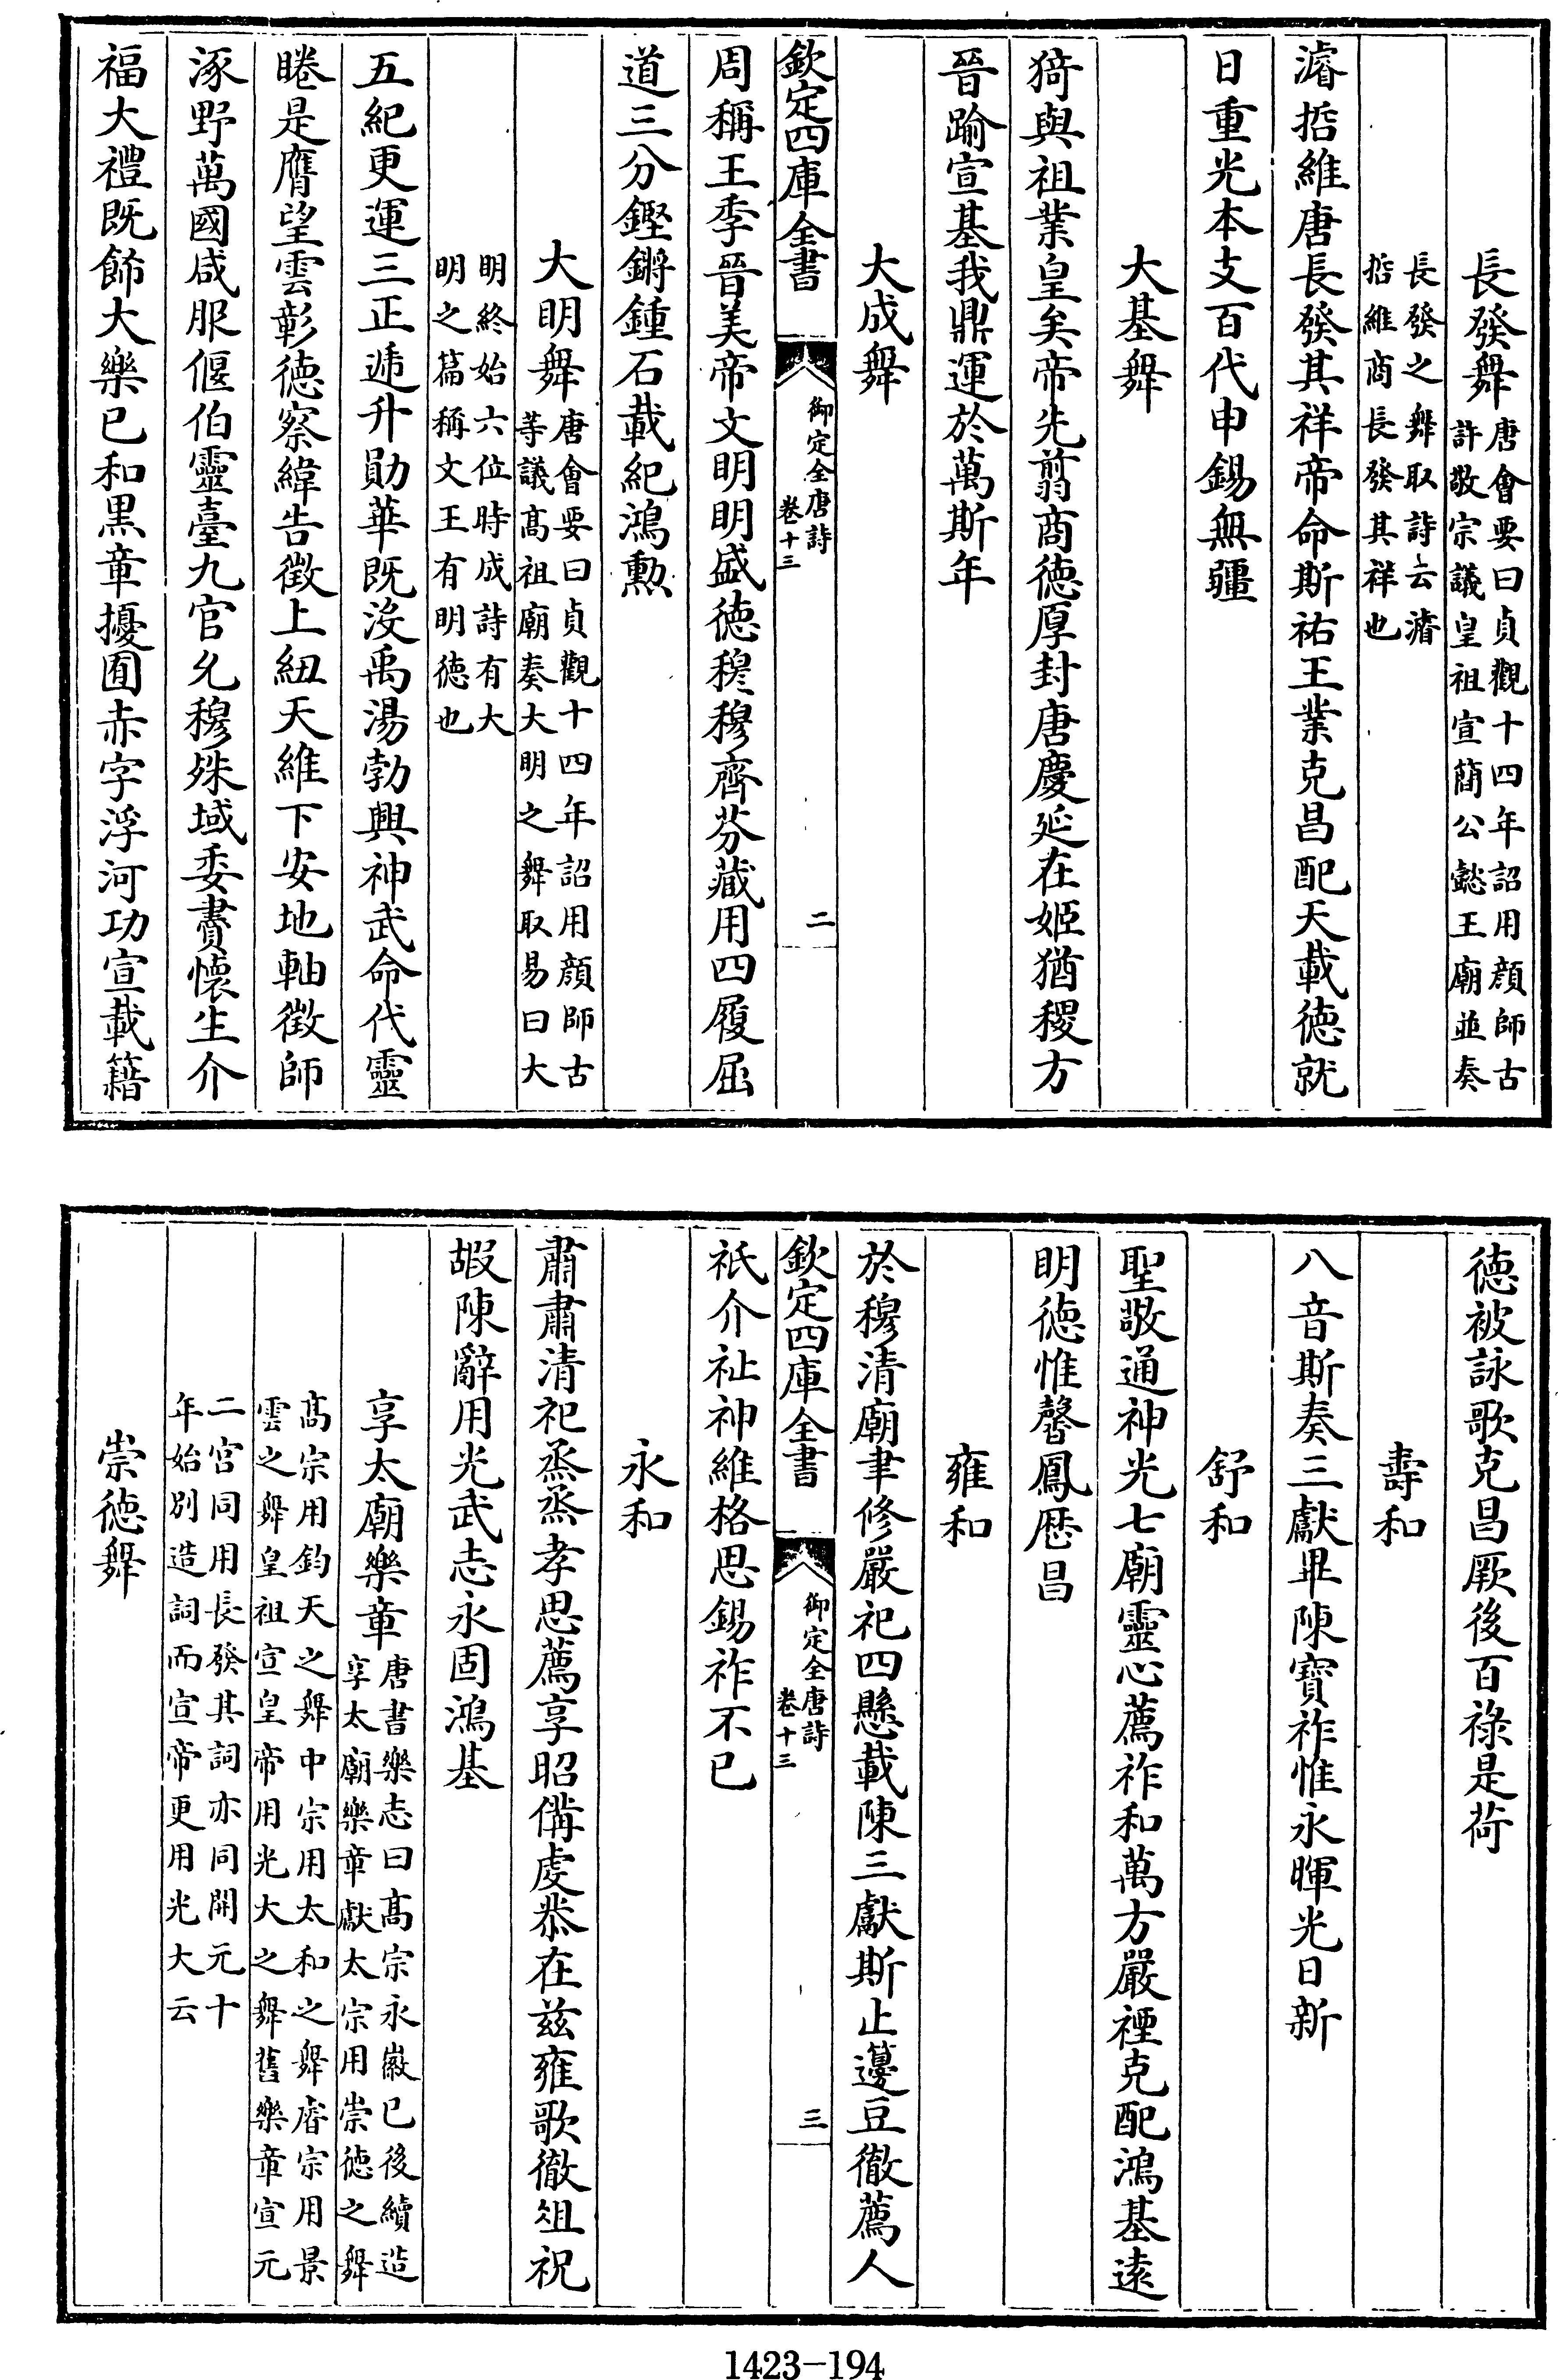 長發舞唐會要曰貞觀十四年詔用顏師古
許敬宗議皇祖宣簡公懿王廟並奏
長發之舞取詩云濬
哲維商長發其祥也
濬哲維唐長發其祥帝命斯祐王業克昌配天載德就
日重光本支百代申錫無疆
大基舞
猗與祖業皇矣帝先翦商德厚封唐慶延在姬猶稷方
晉踰宣基我鼎運於萬斯年
大成舞
欽定四庫全書
御定全唐詩
卷十三
二
周稱王季晉美帝文明明盛德穆穆齊芬藏用四履屈
道三分鏗鏘鍾石載紀鴻勲
大明舞唐會要曰貞觀十四年詔用顏師古
等議高祖廟奏大明之舞取易曰大
明終始六位時成詩有大
明之篇稱文王有明德也
五紀更運三正遞升勛華既沒禹湯勃興神武命代靈
睠是膺望雲彰德察緯告徵上紐天維下安地軸徵師
涿野萬國咸服偃伯靈臺九官允穆殊域委贐懷生介
福大禮既飾大樂已和黑章擾囿赤字浮河功宣載籍
德被詠歌克昌厥後百祿是荷
壽和
八音斯奏三獻畢陳寶祚惟永暉光日新
舒和
聖敬通神光七廟靈心薦祚和萬方嚴禋克配鴻基遠
明德惟馨鳳厯昌
雍和
於穆清廟聿修嚴祀四懸載陳三獻斯止籩豆徹薦人
欽定四庫全書
御定全唐詩
卷十三
三
祇介祉神維格思錫祚不已
永和
肅肅清祀烝烝孝思薦享昭備虔恭在兹雍歌徹俎祝
嘏陳辭用光武志永固鴻基
享太廟樂章唐書樂志曰高宗永徽已後續造
享太廟樂章獻太宗用崇德之舞
高宗用鈞天之舞中宗用太和之舞睿宗用景
雲之舞皇祖宣皇帝用光大之舞舊樂章宣元
二宮同用長發其詞亦同開元十
年始別造詞而宣帝更用光大云
崇德舞
1423-194